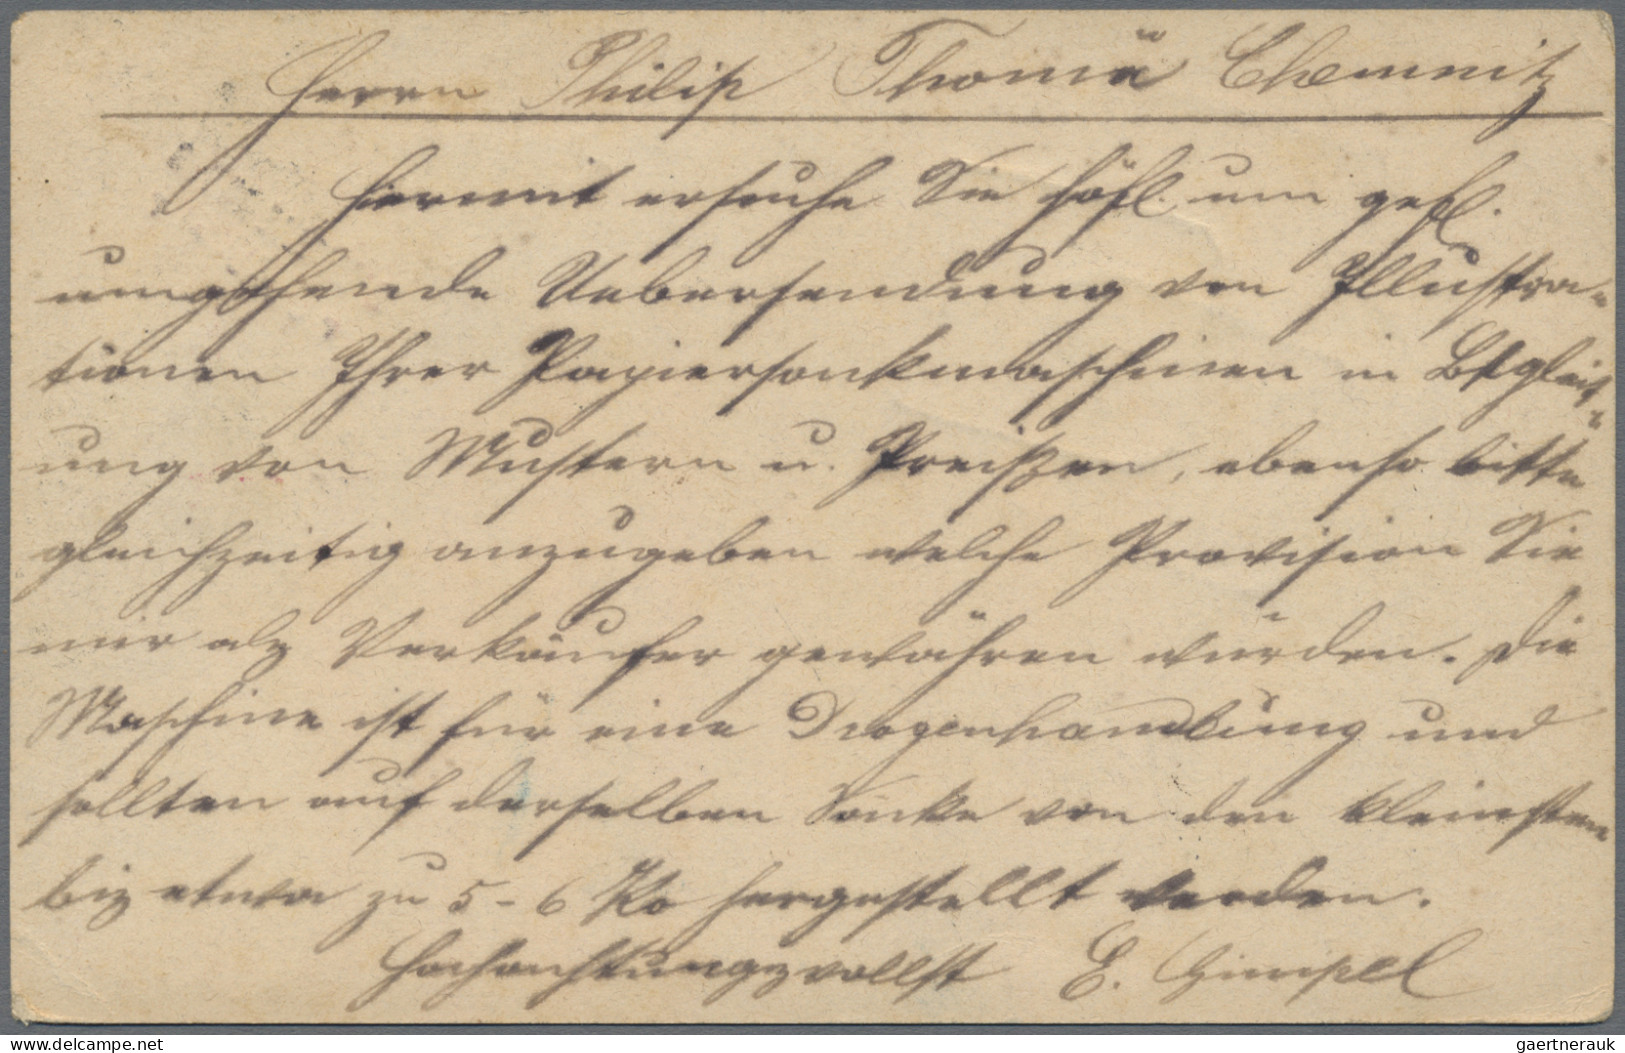 Herrn Philip Thomä Chemnitz
Hiermit ersuche Sie höfl. um gefl.
umgehende Uebersendung von Illustra-
tionen Ihrer Papiersackmaschinen in Begleit-
ung von Mustern u. Preißen, ebenso bitte
gleichzeitig anzugeben welche Provision Sie
mir als Verkäufer gewähren würden. Die
Maschine ist für eine Drogenhandlung und
sollten auf derselben Säcke von den kleinsten
bis etwa zu 5-6 Ko hergestellt werden.
Hochachtungsvollst E. Gimpel
gaertnerauk
www.delcampe.net